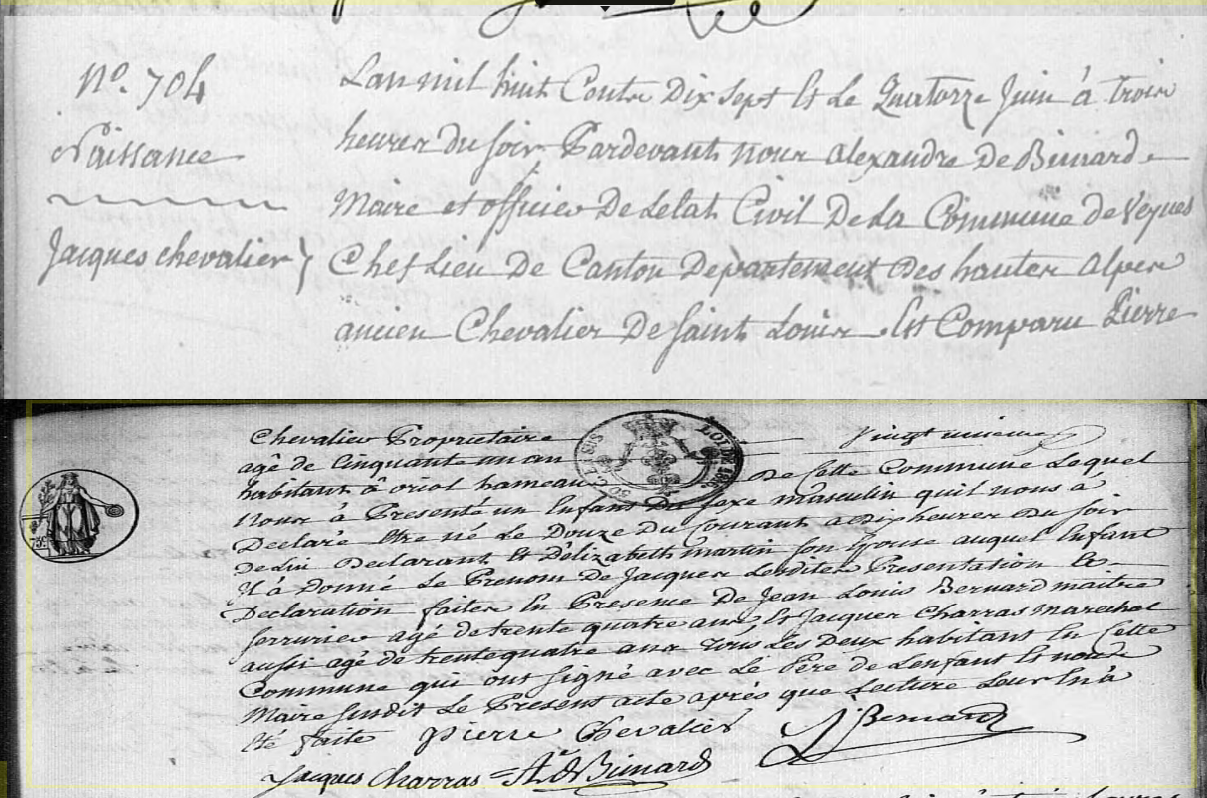 N.º 704
Naissance
Jacques chevalier
L'an mil huit Cents Dix sept Et Le Quatorze Juin à trois
heures du soir Pardevant nous alexandre De Bimard
Maire et officier De Letat Civil De La Commune de Veynes
Chef Lieu De Canton Departement Des hautes Alpes
ancien Chevalier De Saint Louis Est Comparu Pierre
Chevalier Proprietaire vingt unieme
agé de Cinquante un an
habitant à oriol hameau De Cette Commune Lequel
Nous à Presenté un Enfant Du sexe masculin quil nous à
Declaré Etre né Le Douze Du Courant a dix heures Du soir
De Lui Declarant Et D'elizabeth martin son Epouse auquel Enfant
Il à Donné Le Prenom De Jacques Lesdites Presentation Et
Declaration faites En Presence De Jean Louis Bernard maitre
serrurier agé de trente quatre ans Et Jacques Charras Marechal
aussi agé de trente quatre ans Tous Les Deux habitant En Cette
Commune qui ont signé avec Le Père de L'enfant Et nous
Maire susdit Le Present acte aprés que Lecture Leur En à
Eté faite pierre Chevalier J. Bernard
Jacques Charras Aˣ. de Bimard
75ᶜ